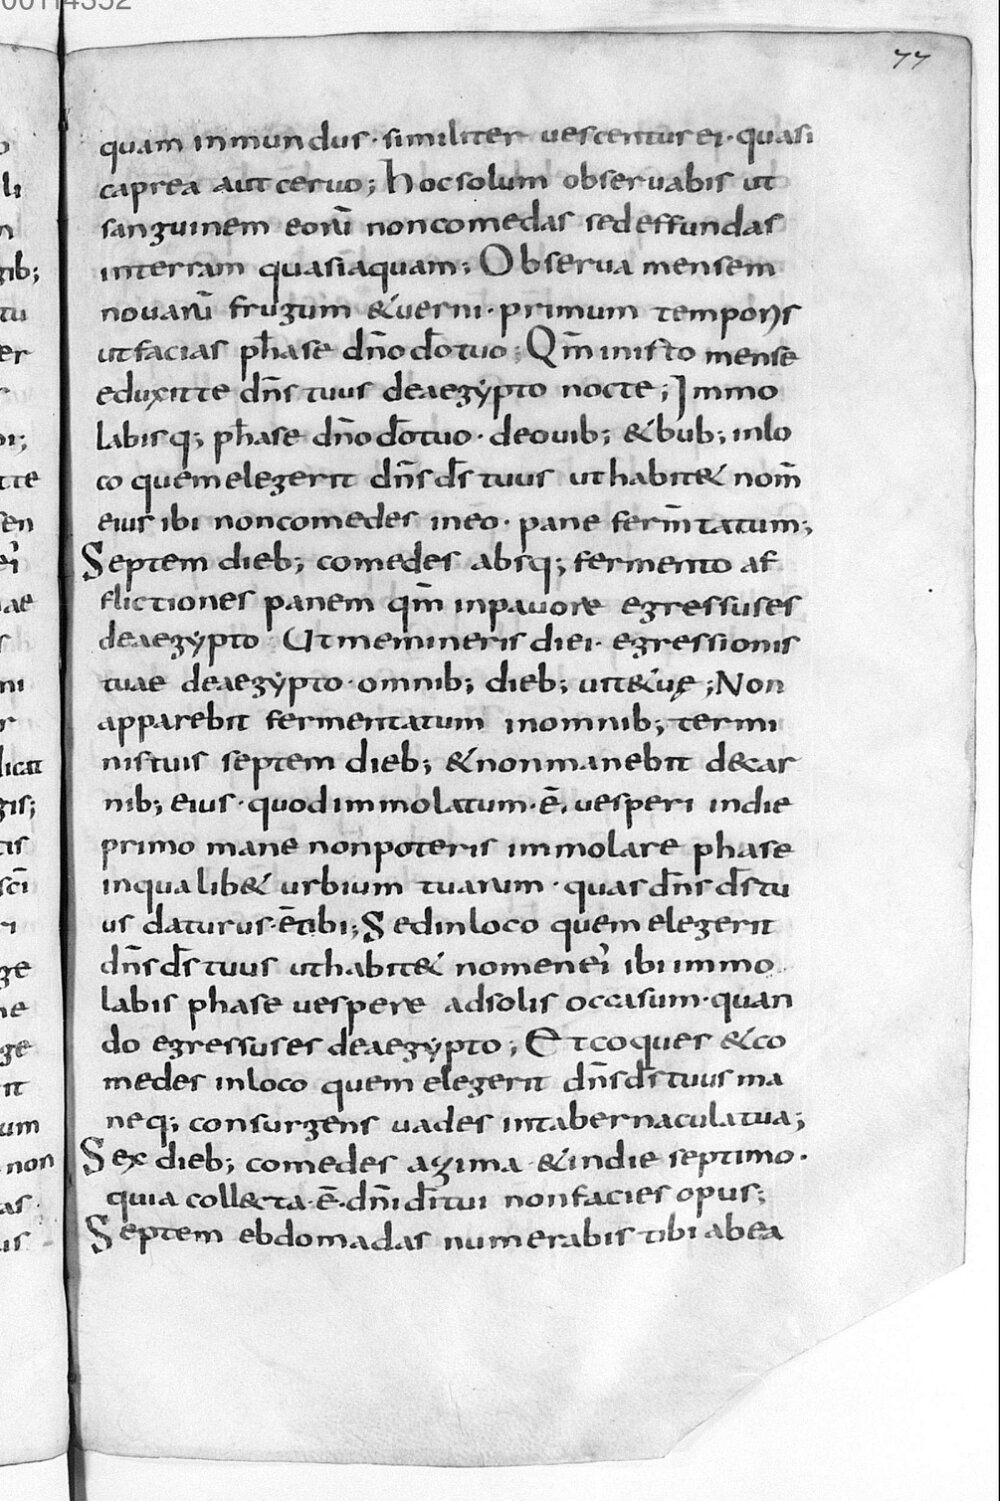 77
quam inmundus · similiter vescentur ei · quasi
caprea aut cervo; hoc solum observabis ut
sanguinem eorū non comedas sed effundas
in terram quasi aquam; Observa mensem
novarū frugum & verni · primum temporis
ut facias phase dn̄o dō tuo; Qm̄ in isto mense
eduxit te dn̄s tuus de aegẏpto nocte; Immo
labisq; phase dn̄o dō tuo · de ovib; & bub; in lo
co quem elegerit dn̄s ds̄ tuus ut habit& nom̄
eius ibi non comedes in eo · pane ferm̄tatum;
Septem dieb; comedes absq; fermento af
flictiones panem qm̄ in pavore egressus es
de aegẏpto · Ut memineris diei · egressionis
tuae de aegẏpto · omnib; dieb; vit& uę; Non
apparebit fermentatum in omnib; termi
nis tuis septem dieb; & non manebit de car
nib; eius · quod immolatum · ē · vesperi in die
primo mane non poteris immolare phase
in qualib& urbium tuarum · quas dn̄s ds̄ tu
us daturus · ē tibi; Sed in loco quem elegerit
dn̄s ds̄ tuus ut habit& nomen ei' ibi immo
labis phase vespere ad solis occasum · quan
do egressus es de aegẏpto; Et coques & co
medes in loco quem elegerit dn̄s ds̄ tuus ma
neq; consurgens vades in tabernacula tua;
Sex dieb; comedes azima · & in die septimo ·
quia coll&cta · ē · dn̄i dī tui non facies opus;
Septem ebdomadas numerabis tibi ab ea